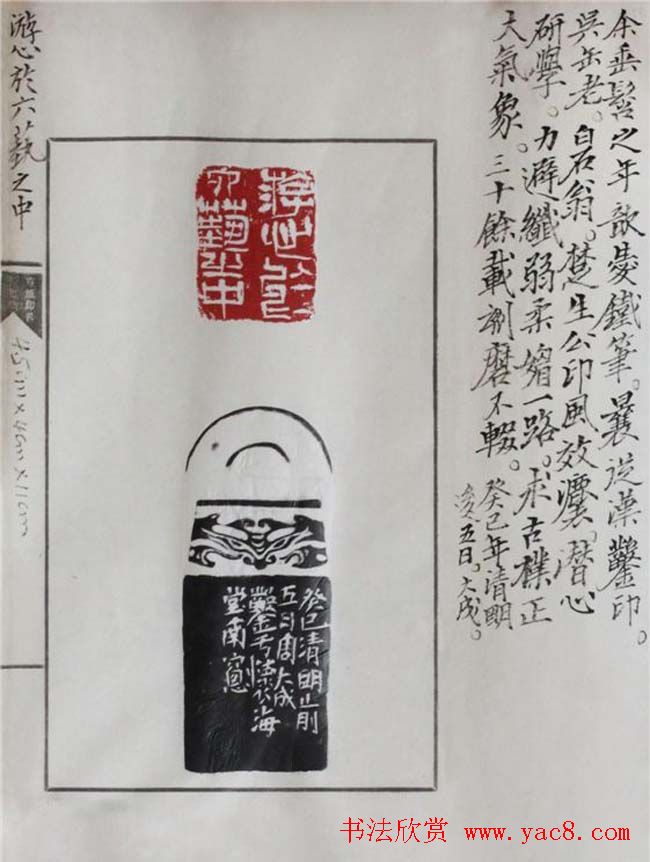 余垂髫之年歆爱鐵筆。曩从漢鑿印。
吳缶老。白石翁。楚生公印風效灋。潜心
研學。力避纖弱柔媚一路。求古樸正
大氣象。三十餘載刓磨不輟。
癸巳年清明
後五日。大成。
游心於六藝之中
游心於
六藝之中
癸巳清明前
五日周大成
鑿于懷海
堂南窗
45mm×4cm×11cm
书法欣赏 www.yac8.com